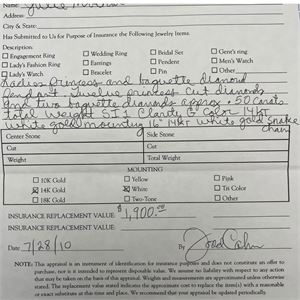 Name Julie
Address
City & State:
Has Submitted to Us for Purpose of Insurance the Following Jewelry Items.
Description:
☐ Engagement Ring ☐ Wedding Ring ☐ Bridal Set ☐ Gent's ring
☐ Lady's Fashion Ring ☐ Earrings ☐ Pendent ☐ Men's Watch
☐ Lady's Watch ☐ Bracelet ☐ Pin ☐ Other
Ladies Princess and baguette diamond
Pendant. Twelve princess cut diamonds
and two baguette diamonds approx. .50 carats
total weight SI1 Clarity G Color 14kt
white gold mounting 16" 14kt white gold snake
chain
Center Stone Side Stone
Cut Cut
Weight Weight
MOUNTING
☐ 10K Gold ☐ Yellow ☐ Pink
☑ 14K Gold ☑ White ☐ Tri Color
☐ 18K Gold ☐ Two-Tone ☐ Other
INSURANCE REPLACEMENT VALUE $1,900.00
INSURANCE REPLACEMENT VALUE
Date 7/28/10 By
NOTE: This appraisal is an instrument of identification for insurance purposes and does not constitute an offer to
purchase, nor is it intended to represent disposable value. We assume no liability with respect to any action
that may be taken on the basis of this appraisal. Weights and measurements are approximated unless otherwise
stated. The replacement value stated indicates the approximate cost to replace the item(s) with a reasonable
or exact substitute at this time and place. We recommend that your appraisal be updated periodically.